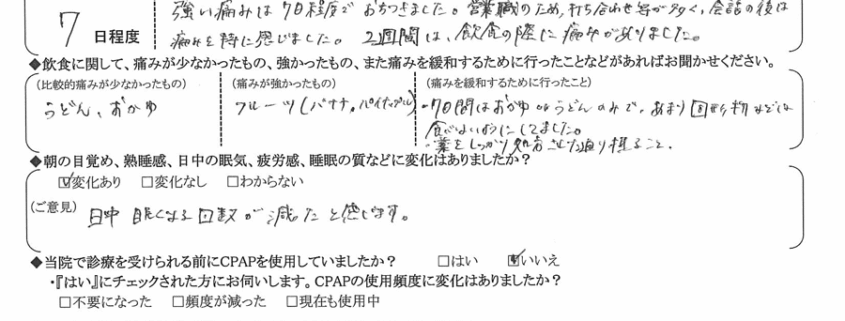 強い痛みは7日程度でおちつきました。営業職のため、打ち合わせ等が多く、会話の後は
7 日程度 痛みを特に感じました。 2週間は、飲食の際に痛みがありました。
◆飲食に関して、痛みが少なかったもの、強かったもの、また痛みを緩和するために行ったことなどがあればお聞かせください。
(比較的痛みが少なかったもの) (痛みが強かったもの) (痛みを緩和するために行ったこと)
うどん、おかゆ フルーツ(バナナ、パイナップル) ・7日間はおかゆorうどんのみで、あまり固形物などは
食べないようにしてました。
・薬をしっかり処方された通り摂ること。
◆朝の目覚め、熟睡感、日中の眠気、疲労感、睡眠の質などに変化はありましたか?
☑変化あり □変化なし □わからない
(ご意見) 日中 眠くなる回数が減ったと感じます。
◆当院で診療を受けられる前にCPAPを使用していましたか? □はい ☑いいえ
・『はい』にチェックされた方にお伺いします。CPAPの使用頻度に変化はありましたか?
□不要になった □頻度が減った □現在も使用中